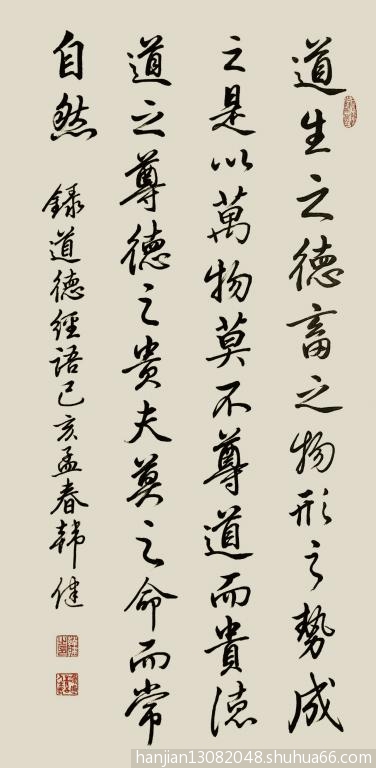 道生之德畜之物形之勢成
之是以萬物莫不尊道而貴德
道之尊德之貴夫莫之命而常
自然 録道德經語己亥孟春韓健
hanjian13082048.shuhua66.com